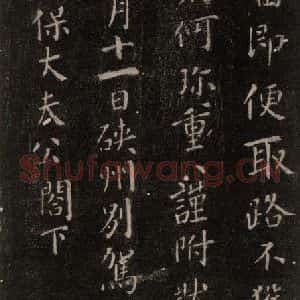 即便取路不獲
何珎重謹附狀
月十一日硤州別駕
保大老公閤下
Shufawang.CN